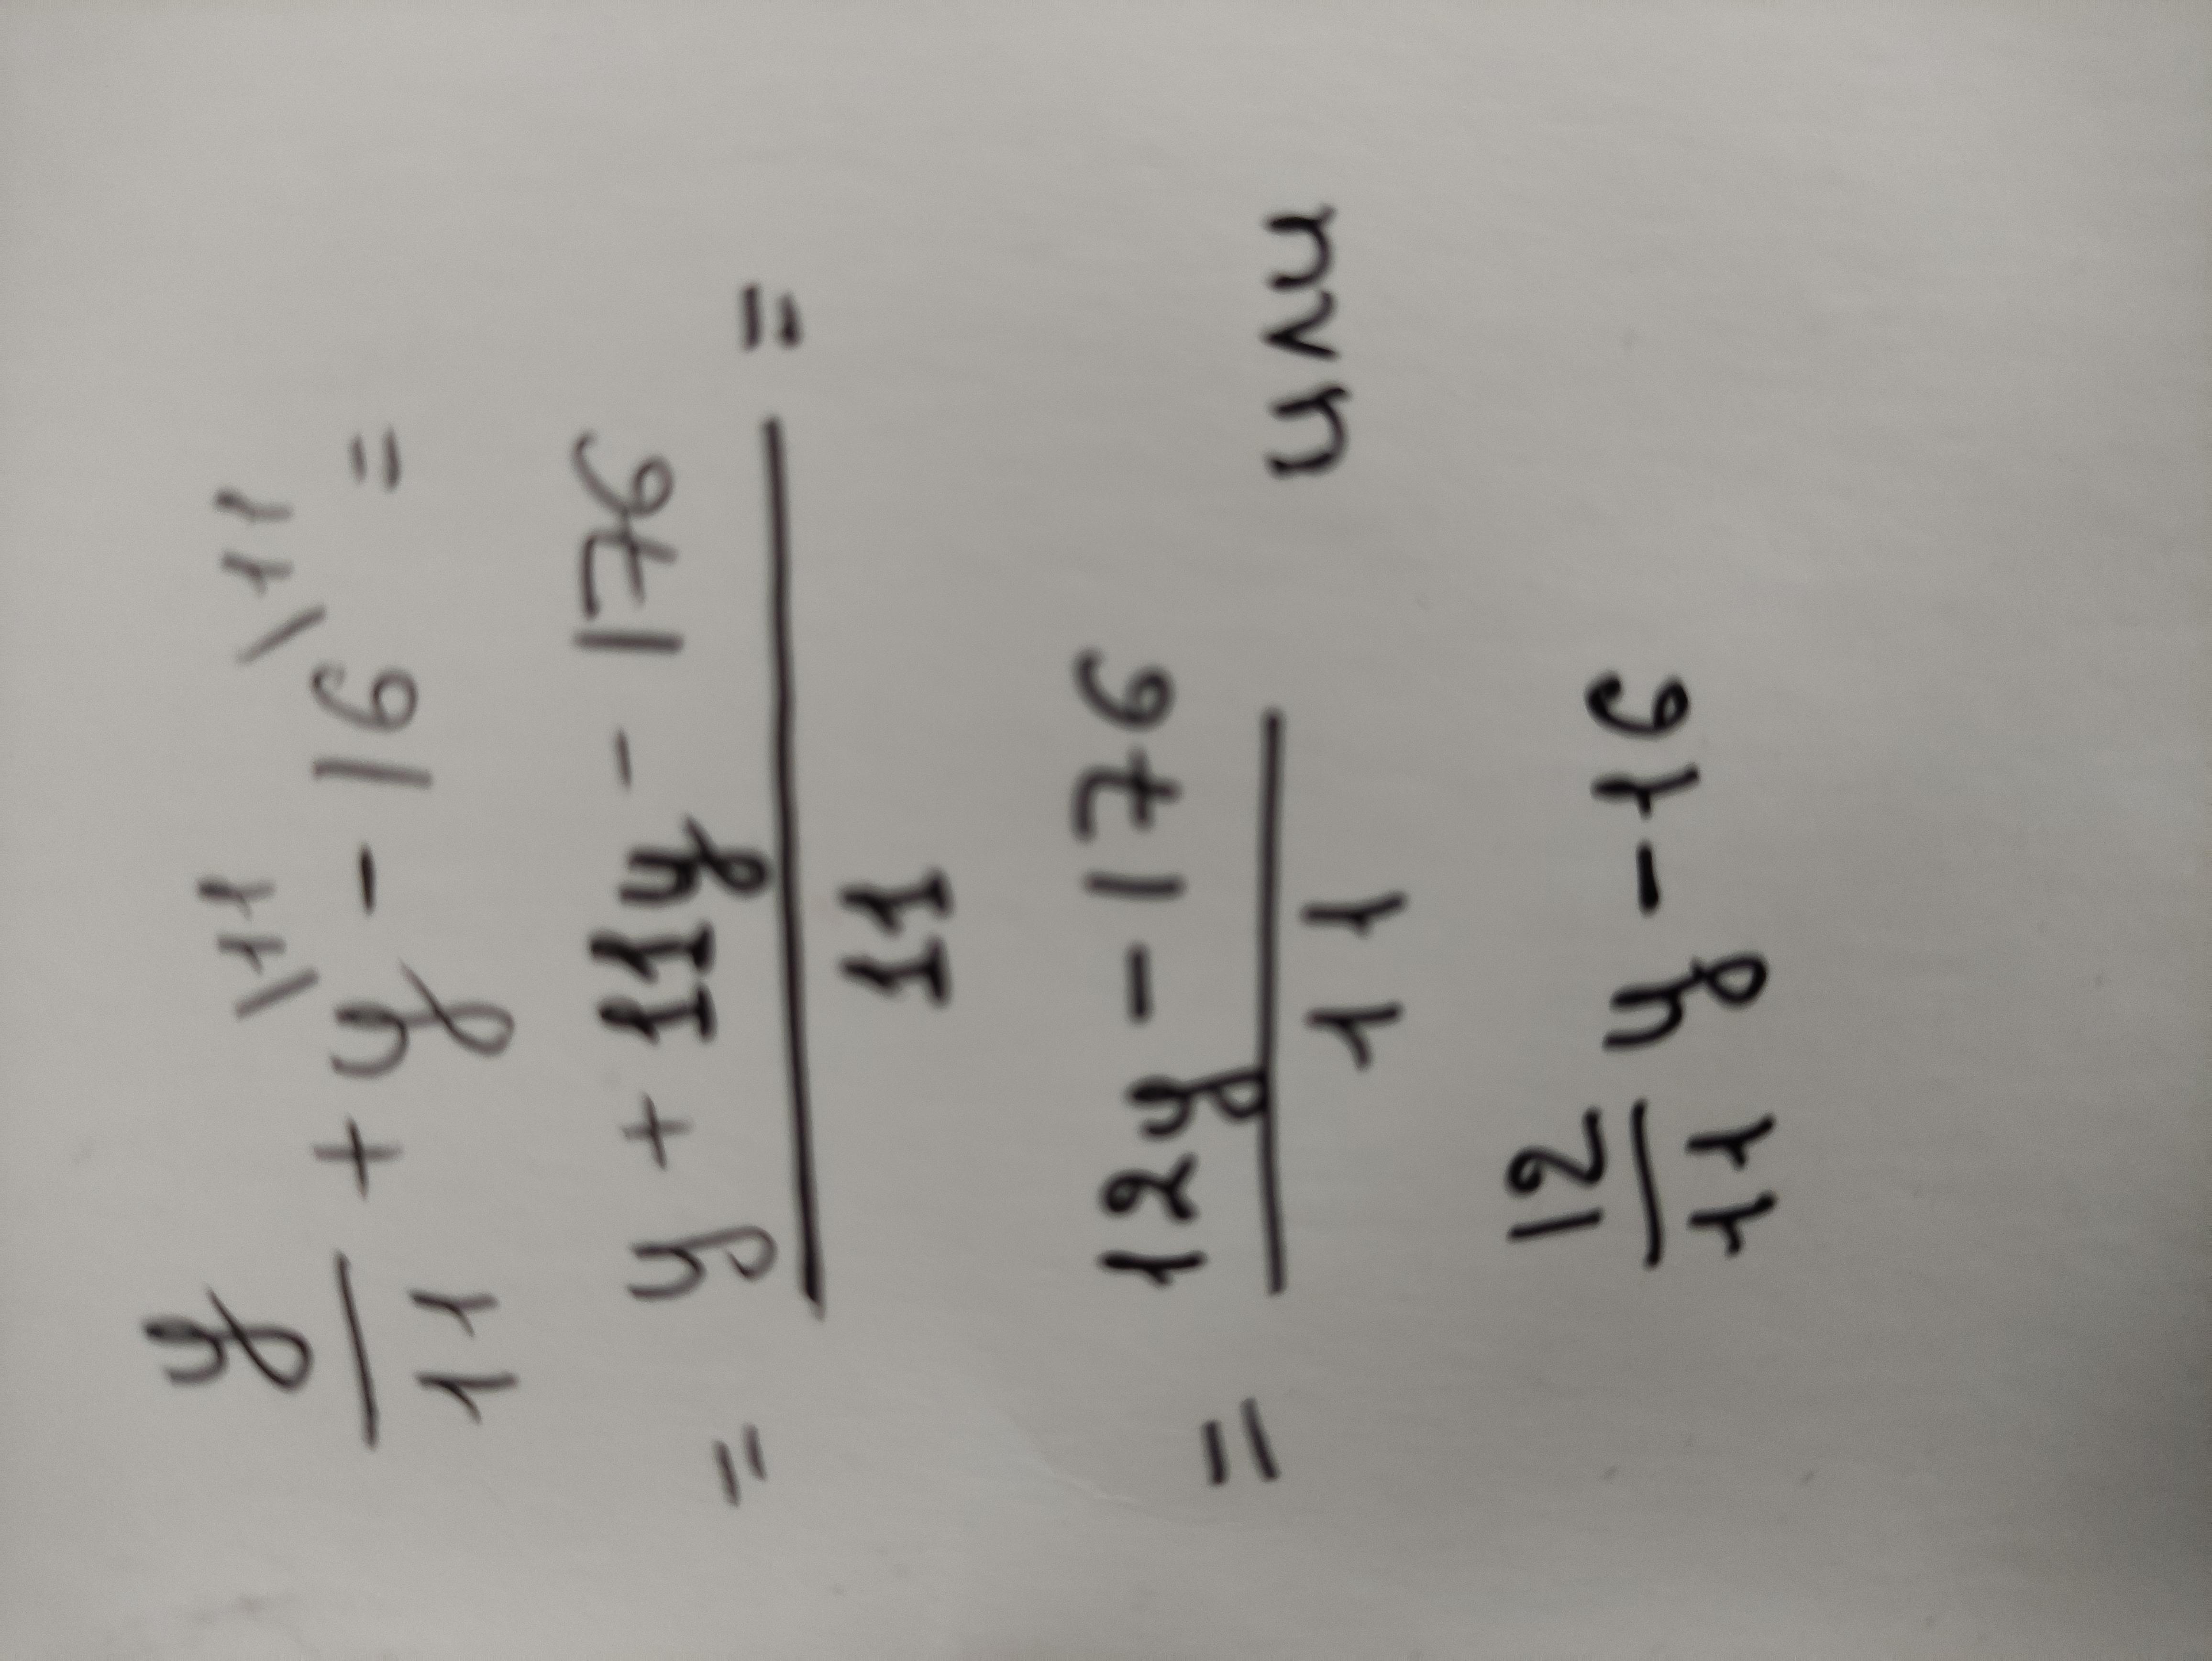 y/11 + y\11 - 16\11 =
= (y + 11y - 176)/11 =
= (12y - 176)/11 или
12/11 y - 16